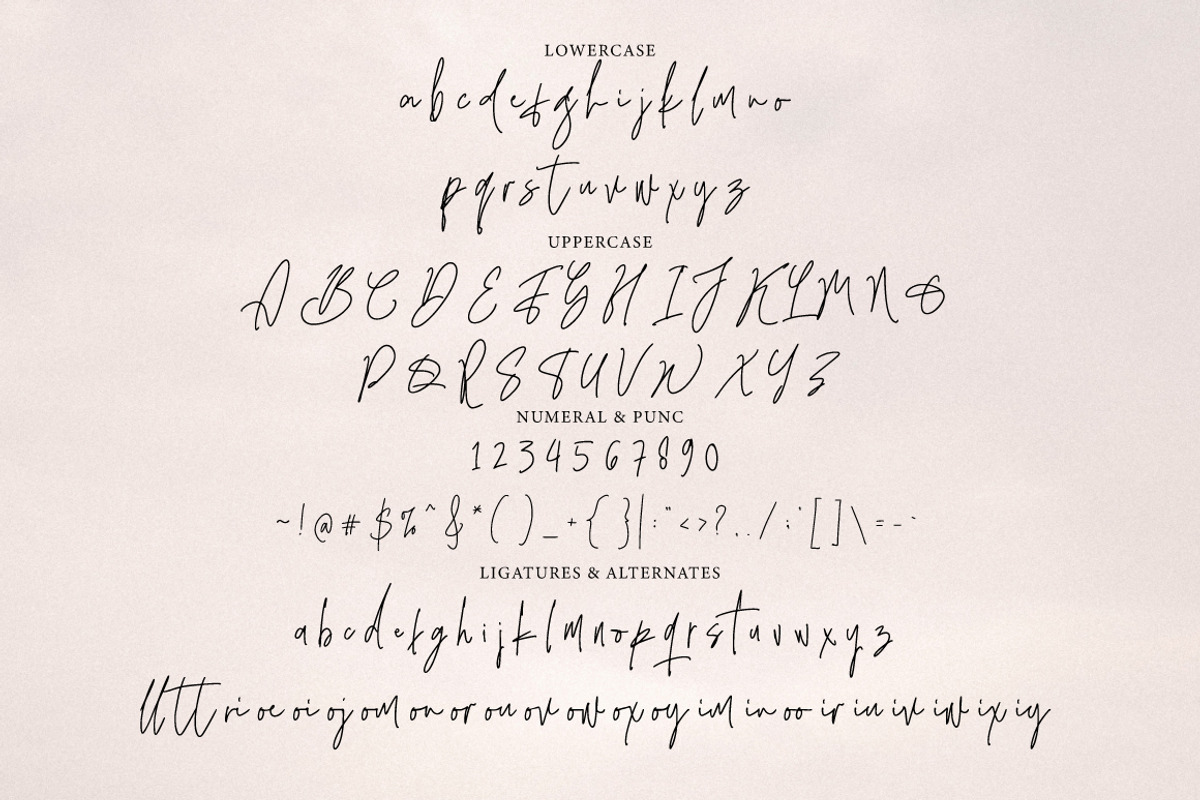 LOWERCASE
a b c d e f g h i j k l m n o
p q r s t u v w x y z
UPPERCASE
A B C D E F G H I J K L M N O
P Q R S T U V W X Y Z
NUMERAL & PUNC
1 2 3 4 5 6 7 8 9 0
~ ! @ # $ % ^ & * ( ) _ + { } | : " < > ? . . / ; ' [ ] \ = - `
LIGATURES & ALTERNATES
a b c d e f g h i j k l m n o p q r s t u v w x y z
ll tt ri oe oi oj om on or ou ov ow ox oy im in oo ir iu iv iw ix iy